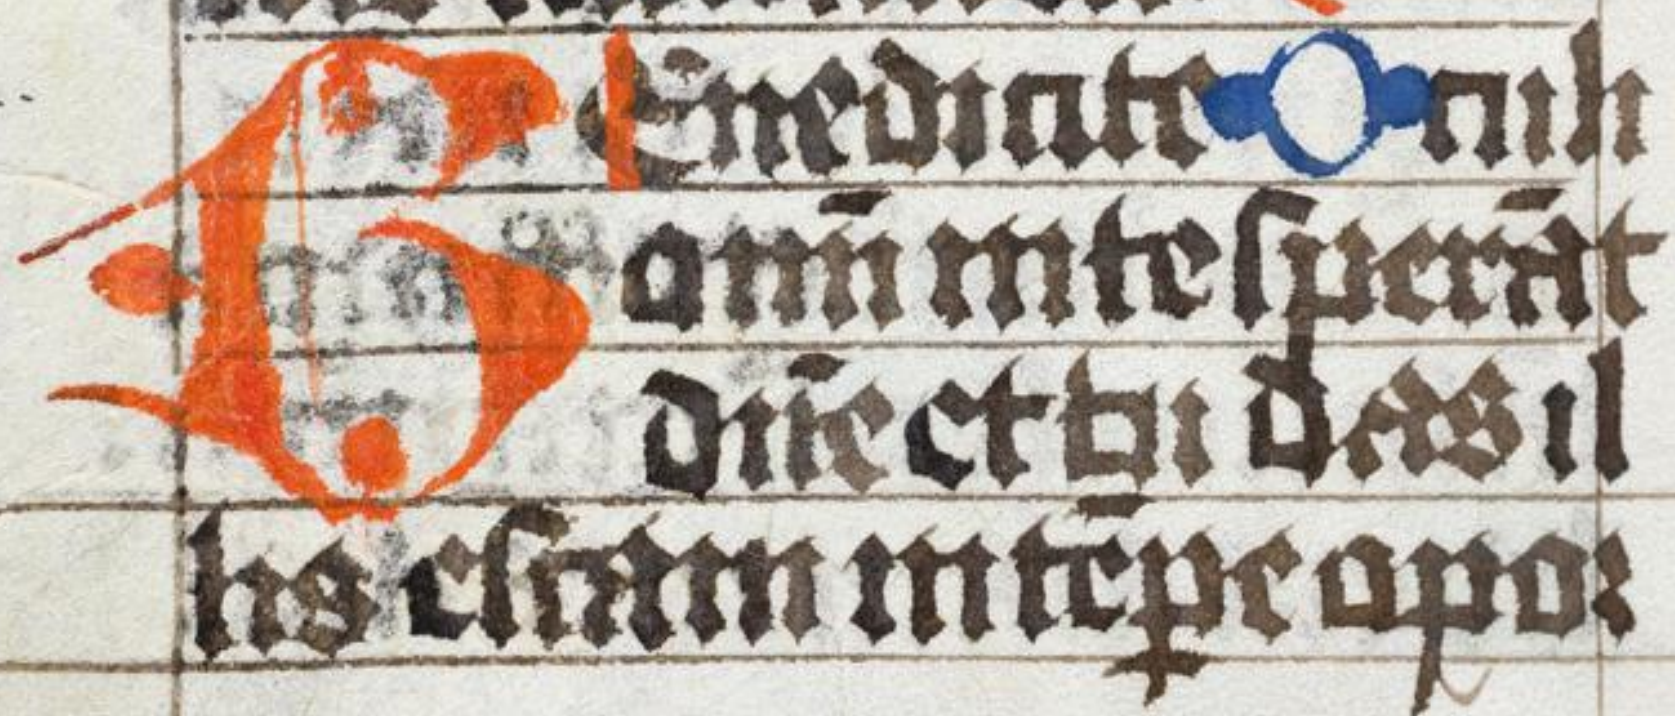 BEnedicite Oculi
omniū in te sperāt
dn̄e et tu das il
lis escam in tēꝑe opor